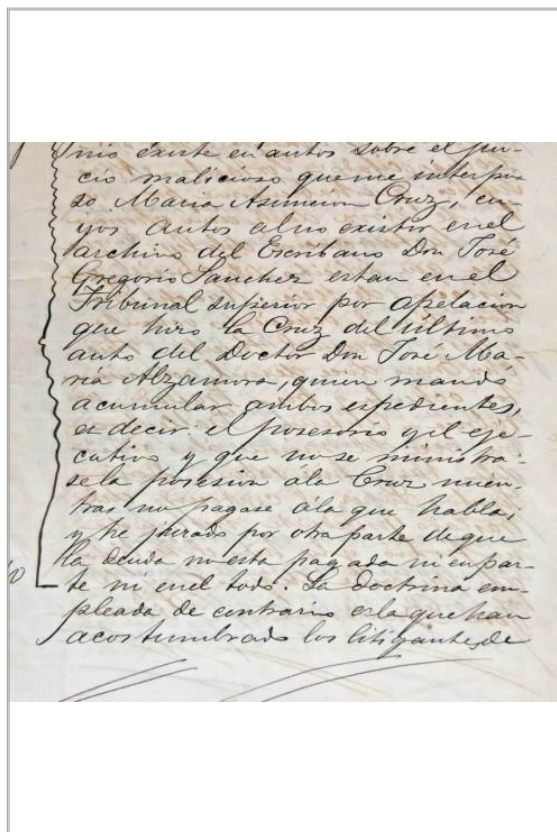 mis existe en autos sobre el jui-
cio malicioso que me interpu-
so Maria Asuncion Cruz, cu-
yos autos al no existir en el
archivo del Escribano Don José
Gregorio Sanchez estan en el
Tribunal superior por apelacion
que hizo la Cruz del último
auto del Doctor Don José Ma-
ria Alzamora, quien mandó
acumular ambos espedientes,
es decir: el posesorio y el eje-
cutivo y que no se ministra-
se la posesion á la Cruz mien-
tras no pagase á la que habla;
y he jurado por otra parte de que
la deuda no esta pagada ni en par-
te ni en el todo. La doctrina em-
pleada de contrario es la que han
acostumbrado los litigantes de